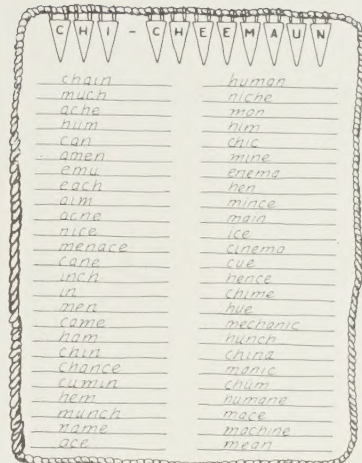 CHI-CHEEMAUN
chain
much
ache
hum
can
amen
emu
each
aim
acne
nice
menace
cane
inch
in
men
came
ham
chin
chance
cumin
hem
munch
name
ace
human
niche
man
him
chic
mine
enema
hen
mince
main
ice
cinema
cue
hence
chime
hue
mechanic
hunch
china
manic
chum
humane
mace
machine
mean